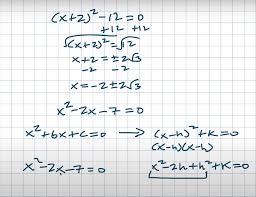 (x+2)²-12=0
+12 +12
√(x+2)²=√12
x+2=±2√3
-2 -2
x=-2±2√3
x²-2x-7=0
x²+bx+c=0 → (x-h)²+k=0
(x-h)(x-h)
x²-2x-7=0 x²-2h+h²+k=0